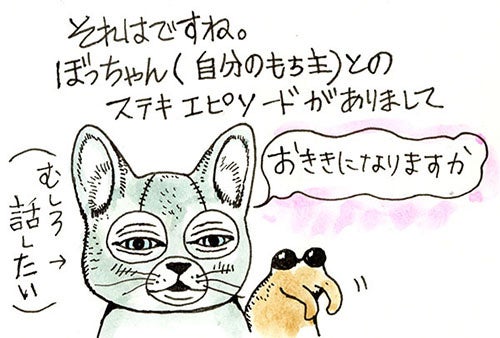 それはですね。
ぼっちゃん(自分のもち主)との
ステキエピソードがありまして
おききになりますか
(むしろ→
話したい)